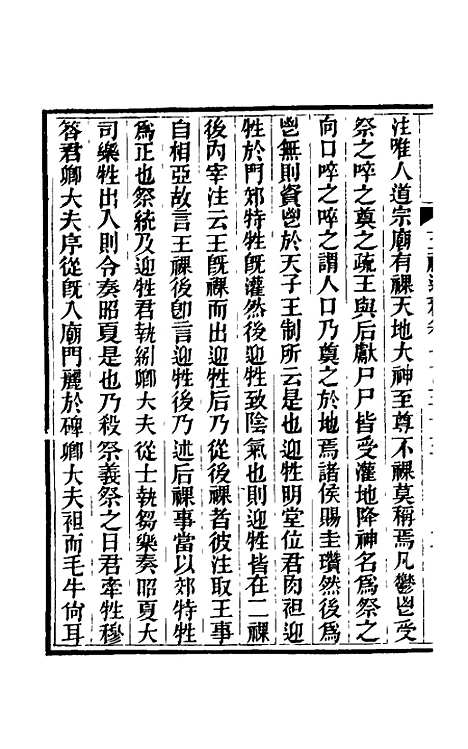 注唯人道宗廟有祼天地大神至尊不祼莫稱焉凡鬱鬯受
祭之啐之奠之疏王與后獻尸尸皆受灌地降神名爲祭之
向口啐之啐之謂人口乃奠之於地焉諸侯賜圭瓚然後爲
鬯無則資鬯於天子王制所云是也迎牲明堂位君肉袒迎
牲於門郊特牲旣灌然後迎牲致陰氣也則迎牲皆在二祼
後內宰注云王旣祼而出迎牲后乃從後祼者彼注取王事
自相亞故言王祼後卽言迎牲後乃述后祼事當以郊特牲
爲正也祭統及迎牲君執紖卿大夫從士執芻樂奏昭夏大
司樂牲出入則令奏昭夏是也乃殺祭義祭之日君牽牲穆
答君卿大夫序從旣入廟門麗於碑卿大夫袒而毛牛尙耳